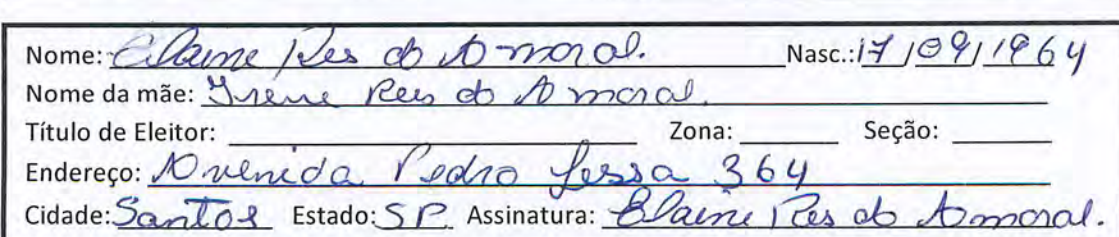 Nome: Elaine Res do Amaral. Nasc.: 17/09/1964
Nome da mãe: Irene Reis do Amaral.
Título de Eleitor: Zona: Seção:
Endereço: Avenida Pedro Lessa 364
Cidade: Santos Estado: SP. Assinatura: Elaine Res do Amaral.